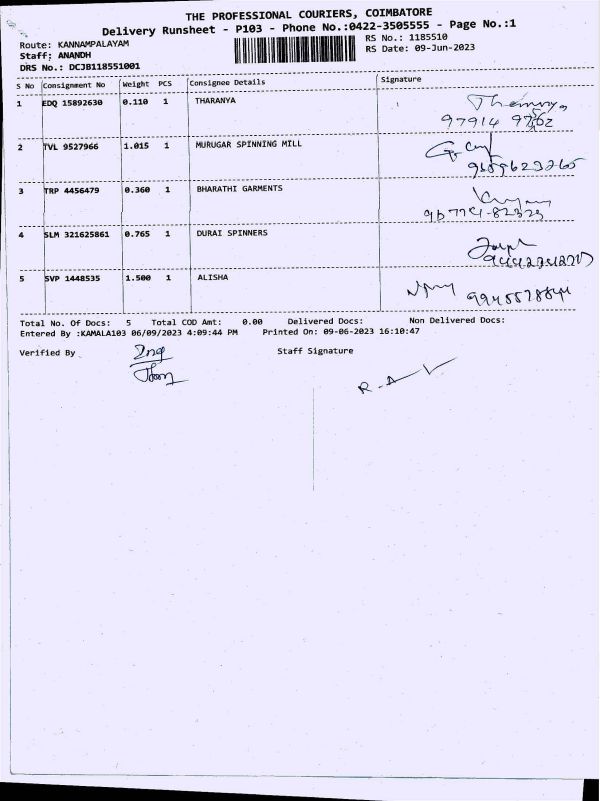 THE PROFESSIONAL COURIERS, COIMBATORE
Delivery Runsheet - P103 - Phone No.:0422-3505555 - Page No.:1
Route: KANNAMPALAYAM RS No.: 1185510
Staff: ANANDH RS Date: 09-Jun-2023
DRS No.: DCJB118551001
S No Consignment No Weight PCS Consignee Details Signature
1 EDQ 15892630 0.110 1 THARANYA
97914
2 TVL 9527966 1.015 1 MURUGAR SPINNING MILL
3 TRP 4456479 0.360 1 BHARATHI GARMENTS
4 SLM 321625861 0.765 1 DURAI SPINNERS
5 SVP 1448535 1.500 1 ALISHA
Total No. Of Docs: 5 Total COD Amt: 0.00 Delivered Docs: Non Delivered Docs:
Entered By :KAMALA103 06/09/2023 4:09:44 PM Printed On: 09-06-2023 16:10:47
Verified By Staff Signature